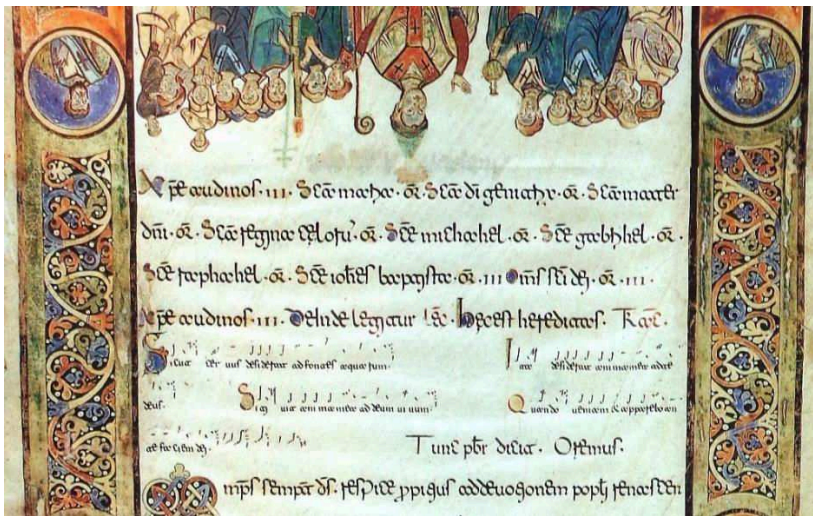 Xp̄e audinos · III · Sc̄a maria · or̄ · Sc̄a dī genitrix · or̄ · Sc̄a mater
dn̄i · or̄ · Sc̄a regina celorū · or̄ · Sc̄e michahel · or̄ · Sc̄e gabrihel · or̄ ·
Sc̄e raphahel · or̄ · Sc̄e ioh̄es baptysta · or̄ · III Om̄s sc̄i dei · or̄ · III ·
Xp̄e audinos · III · Deinde legatur lec̄ · Hec est hereditas ·
Sicut cervus desiderat ad fontes aquarum · Ita desiderat anima mea ad te
deus · Sitivit anima mea ad deum vivum · Quando veniam & apparebo an
te faciem Tunc p̄br dicat · Oremus ·
Omp̄s sempit̄ ds̄ · respice ppitius ad devotionem popli renascen